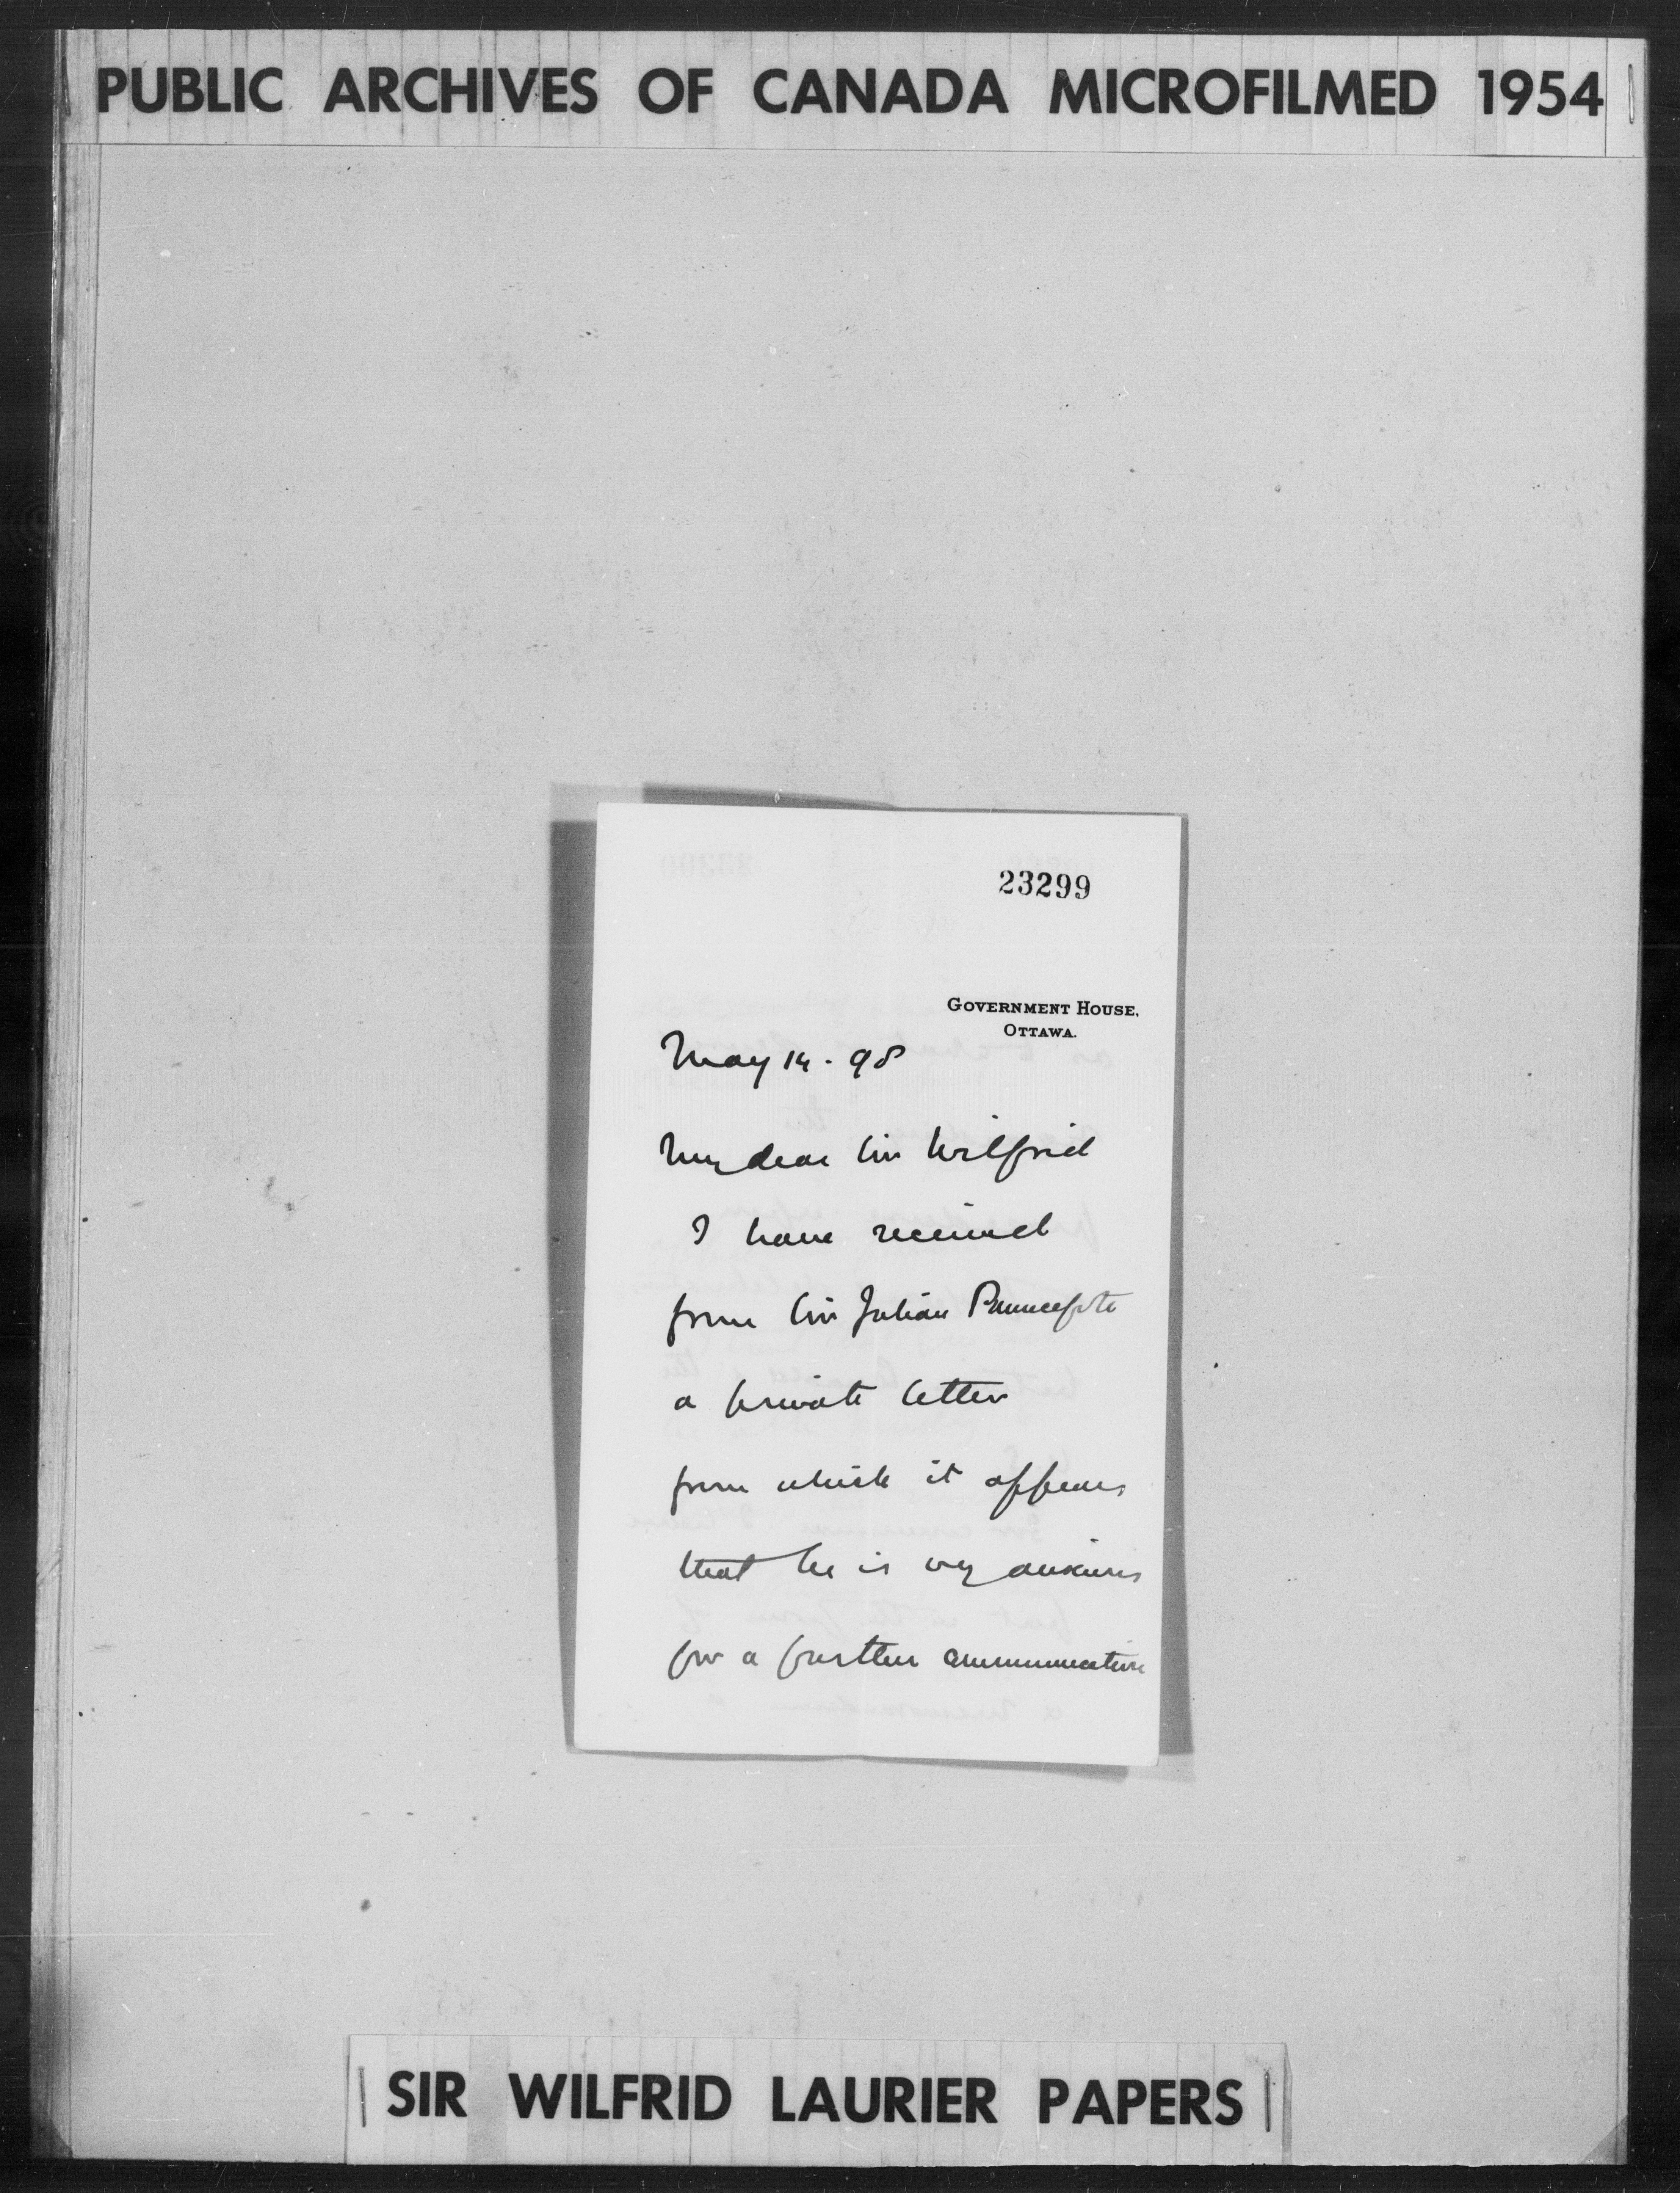 PUBLIC ARCHIVES OF CANADA MICROFILMED 1954
23299
GOVERNMENT HOUSE,
OTTAWA.
May 14 . 98
My dear Sir Wilfrid
I have received
from Sir Julian Pauncefote
a private letter
from which it appears
that he is very anxious
for a further communication
SIR WILFRID LAURIER PAPERS